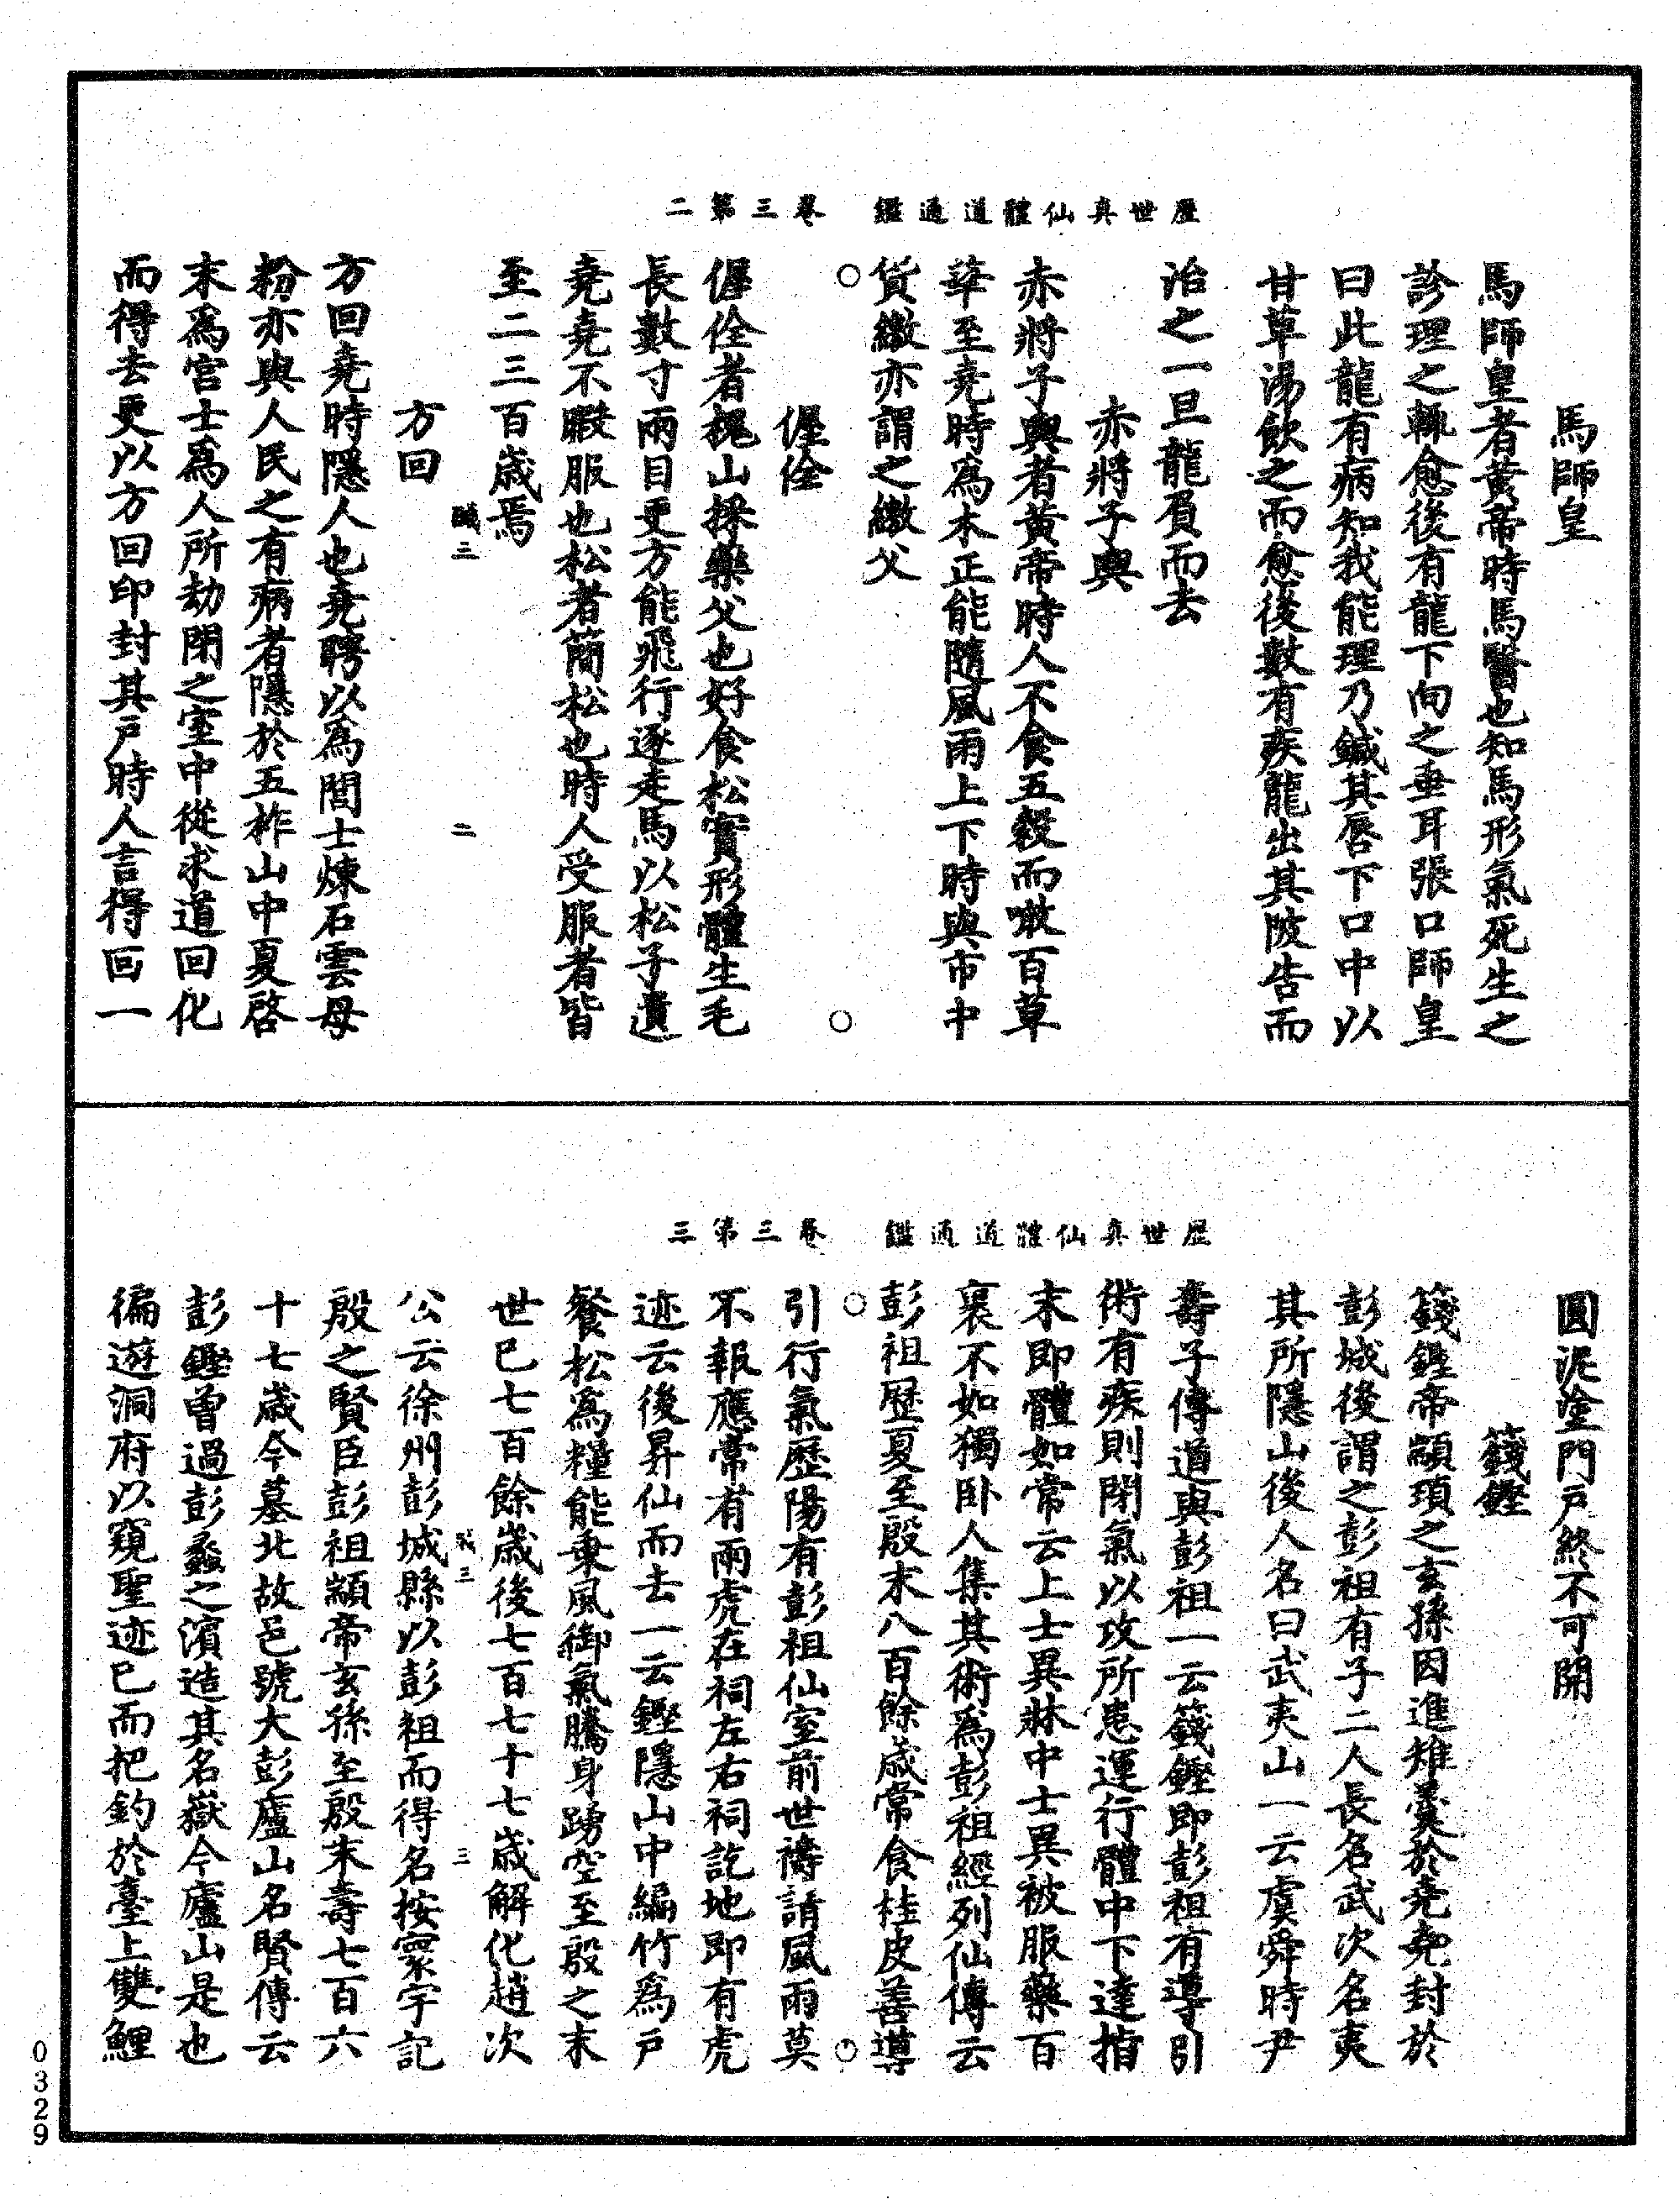 歷世真仙體道通鑑　卷三第二
馬師皇
馬師皇者黃帝時馬醫也知馬形氣死生之
診理之輒愈後有龍下向之垂耳張口師皇
曰此龍有病知我能理乃鍼其唇下口中以
甘草湯飲之而愈後數有疾龍出其陂告而
治之一旦龍負而去
赤將子輿
赤將子輿者黃帝時人不食五穀而噉百草
華至堯時為木正能隨風雨上下時與市中
貨繳亦謂之繳父
偓佺
偓佺者槐山採藥父也好食松實形體生毛
長數寸兩目更方能飛行逐走馬以松子遺
堯堯不暇服也松者簡松也時人受服者皆
至二三百歲焉
方回
方回堯時隱人也堯聘以為閭士煉石雲母
粉亦與人民之有病者隱於五柞山中夏啓
末為宮士為人所劫閉之室中從求道回化
而得去更以方回印封其戶時人言得回一
歷世真仙體道通鑑　卷三第三
圓泥塗門戶終不可開
籛鏗
籛鏗帝顓頊之玄孫因進雉羹於堯堯封於
彭城後謂之彭祖有子二人長名武次名夷
其所隱山後人名曰武夷山一云虞舜時尹
壽子傳道與彭祖一云籛鏗即彭祖有導引
術有疾則閉氣以攻所患運行體中下達指
末即體如常云上士異牀中士異被服藥百
裹不如獨臥人集其術為彭祖經列仙傳云
彭祖歷夏至殷末八百餘歲常食桂皮善導
引行氣歷陽有彭祖仙室前世禱請風雨莫
不報應常有兩虎在祠左右祠訖地即有虎
迹云後昇仙而去一云鏗隱山中編竹為戶
餐松為糧能乘風御氣騰身踴空至殷之末
世已七百餘歲後七百七十七歲解化趙次
公云徐州彭城縣以彭祖而得名按寰宇記
殷之賢臣彭祖顓帝玄孫至殷末壽七百六
十七歲今墓北故邑號大彭廬山名賢傳云
彭鏗曾過彭蠡之濱造其名嶽今廬山是也
徧遊洞府以窺聖迹已而把釣於臺上雙鯉
0329